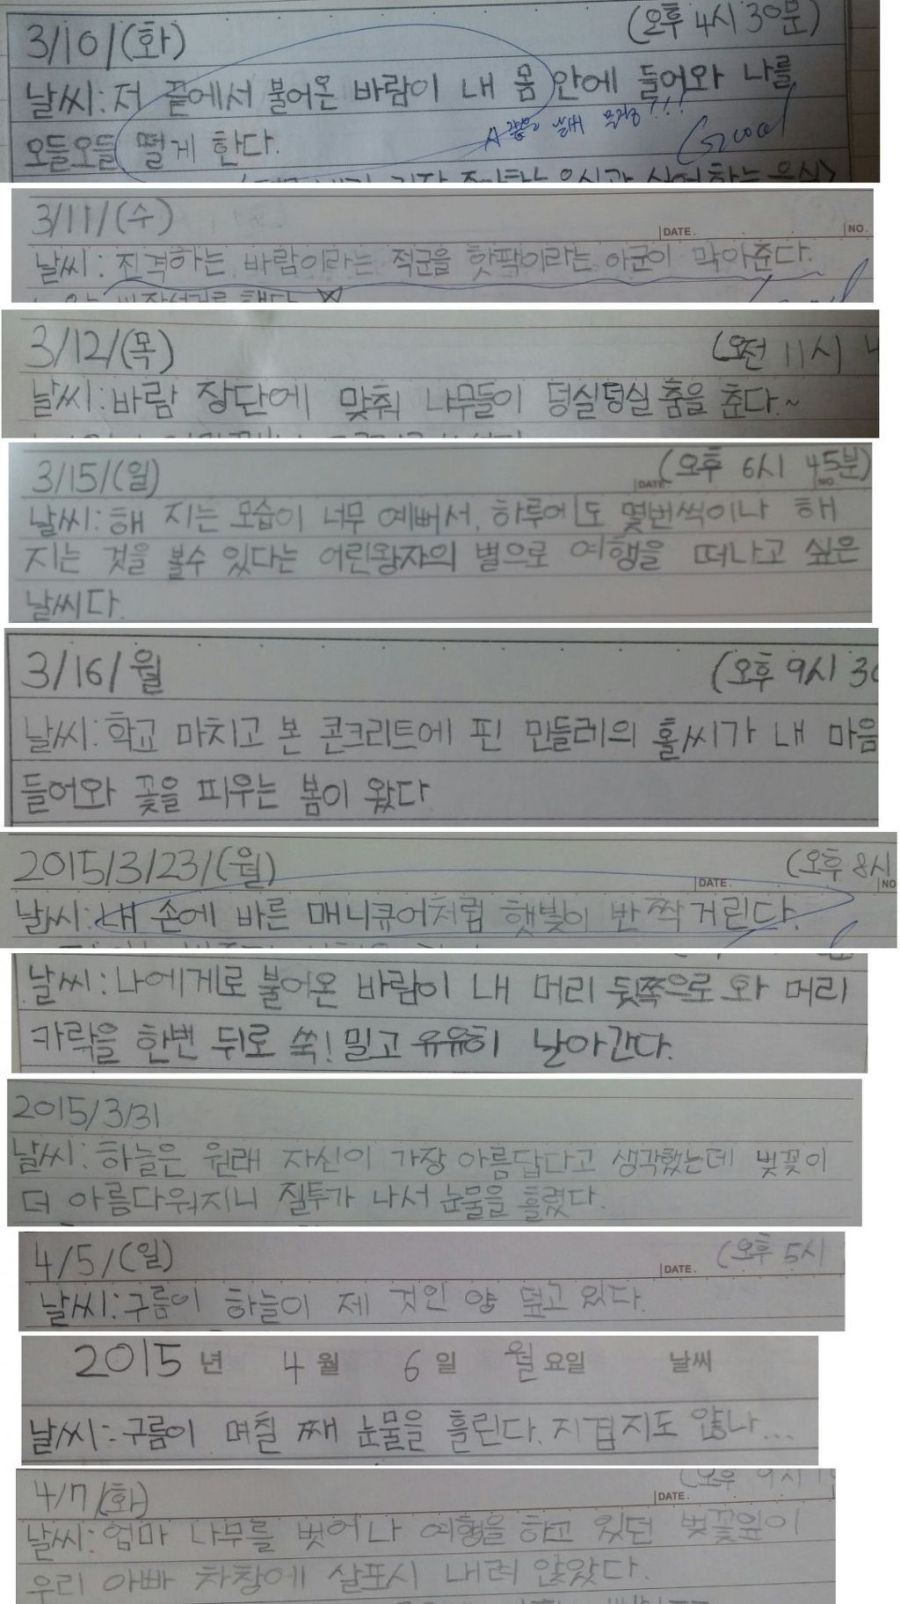 3/10/(화) (오후 4시 30분)
날씨: 저 끝에서 불어온 바람이 내 몸 안에 들어와 나를
오들오들 떨게 한다.
Good
3/11/(수)
DATE. NO.
날씨: 진격하는 바람이라는 적군을 핫팩이라는 아군이 막아준다.
3/12/(목) (오전 11시
날씨: 바람 장단에 맞춰 나무들이 덩실덩실 춤을 춘다.~
3/15/(일) (오후 6시 45분)
DATE NO.
날씨: 해 지는 모습이 너무 예뻐서, 하루에도 몇번씩이나 해
지는 것을 볼수 있다는 어린왕자의 별으로 여행을 떠나고 싶은
날씨다.
3/16/월 (오후 9시 30
날씨: 학교 마치고 본 콘크리트에 핀 민들레의 홀씨가 내 마음
들어와 꽃을 피우는 봄이 왔다
2015/3/23/(월) (오후 8시
DATE. NO
날씨: 내 손에 바른 매니큐어처럼 햇빛이 반짝거린다.
날씨: 나에게로 불어온 바람이 내 머리 뒷쪽으로 와 머리
카락을 한번 뒤로 쑥! 밀고 유유히 날아간다.
2015/3/31
날씨: 하늘은 원래 자신이 가장 아름답다고 생각했는데 벚꽃이
더 아름다워지니 질투가 나서 눈물을 흘렸다.
4/5/(일) (오후 5시
DATE.
날씨: 구름이 하늘이 제 것인 양 덮고 있다.
2015 년 4 월 6 일 월요일 날씨
날씨: 구름이 며칠 째 눈물을 흘린다. 지겹지도 않나...
4/7/(화)
DATE.
날씨: 엄마 나무를 벗어나 여행을 하고 있던 벚꽃잎이
우리 아빠 차창에 살포시 내려 앉았다.